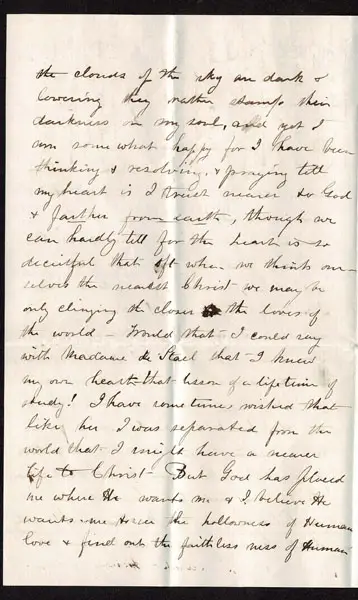 the clouds of the sky are dark &
lowering they rather stamp their
darkness on my soul, and yet I
am some what happy for I have been
thinking & resolving, & praying till
my heart is I trust nearer to God
& farther from earth, though we
can hardly tell for the heart is so
deceitful that oft when we think our
selves the nearest Christ we may be
only clinging the closer to the loves of
the world - Would that I could say
with Madame de Stael that I knew
my own heart - that lesson of a lifetime of
study! I have sometimes wished that
like her I was separated from the
world that I might have a nearer
life to Christ - But God has placed
me where He wants me & I believe He
wants me to see the hollowness of Human
love & find out the faithless ness of Human